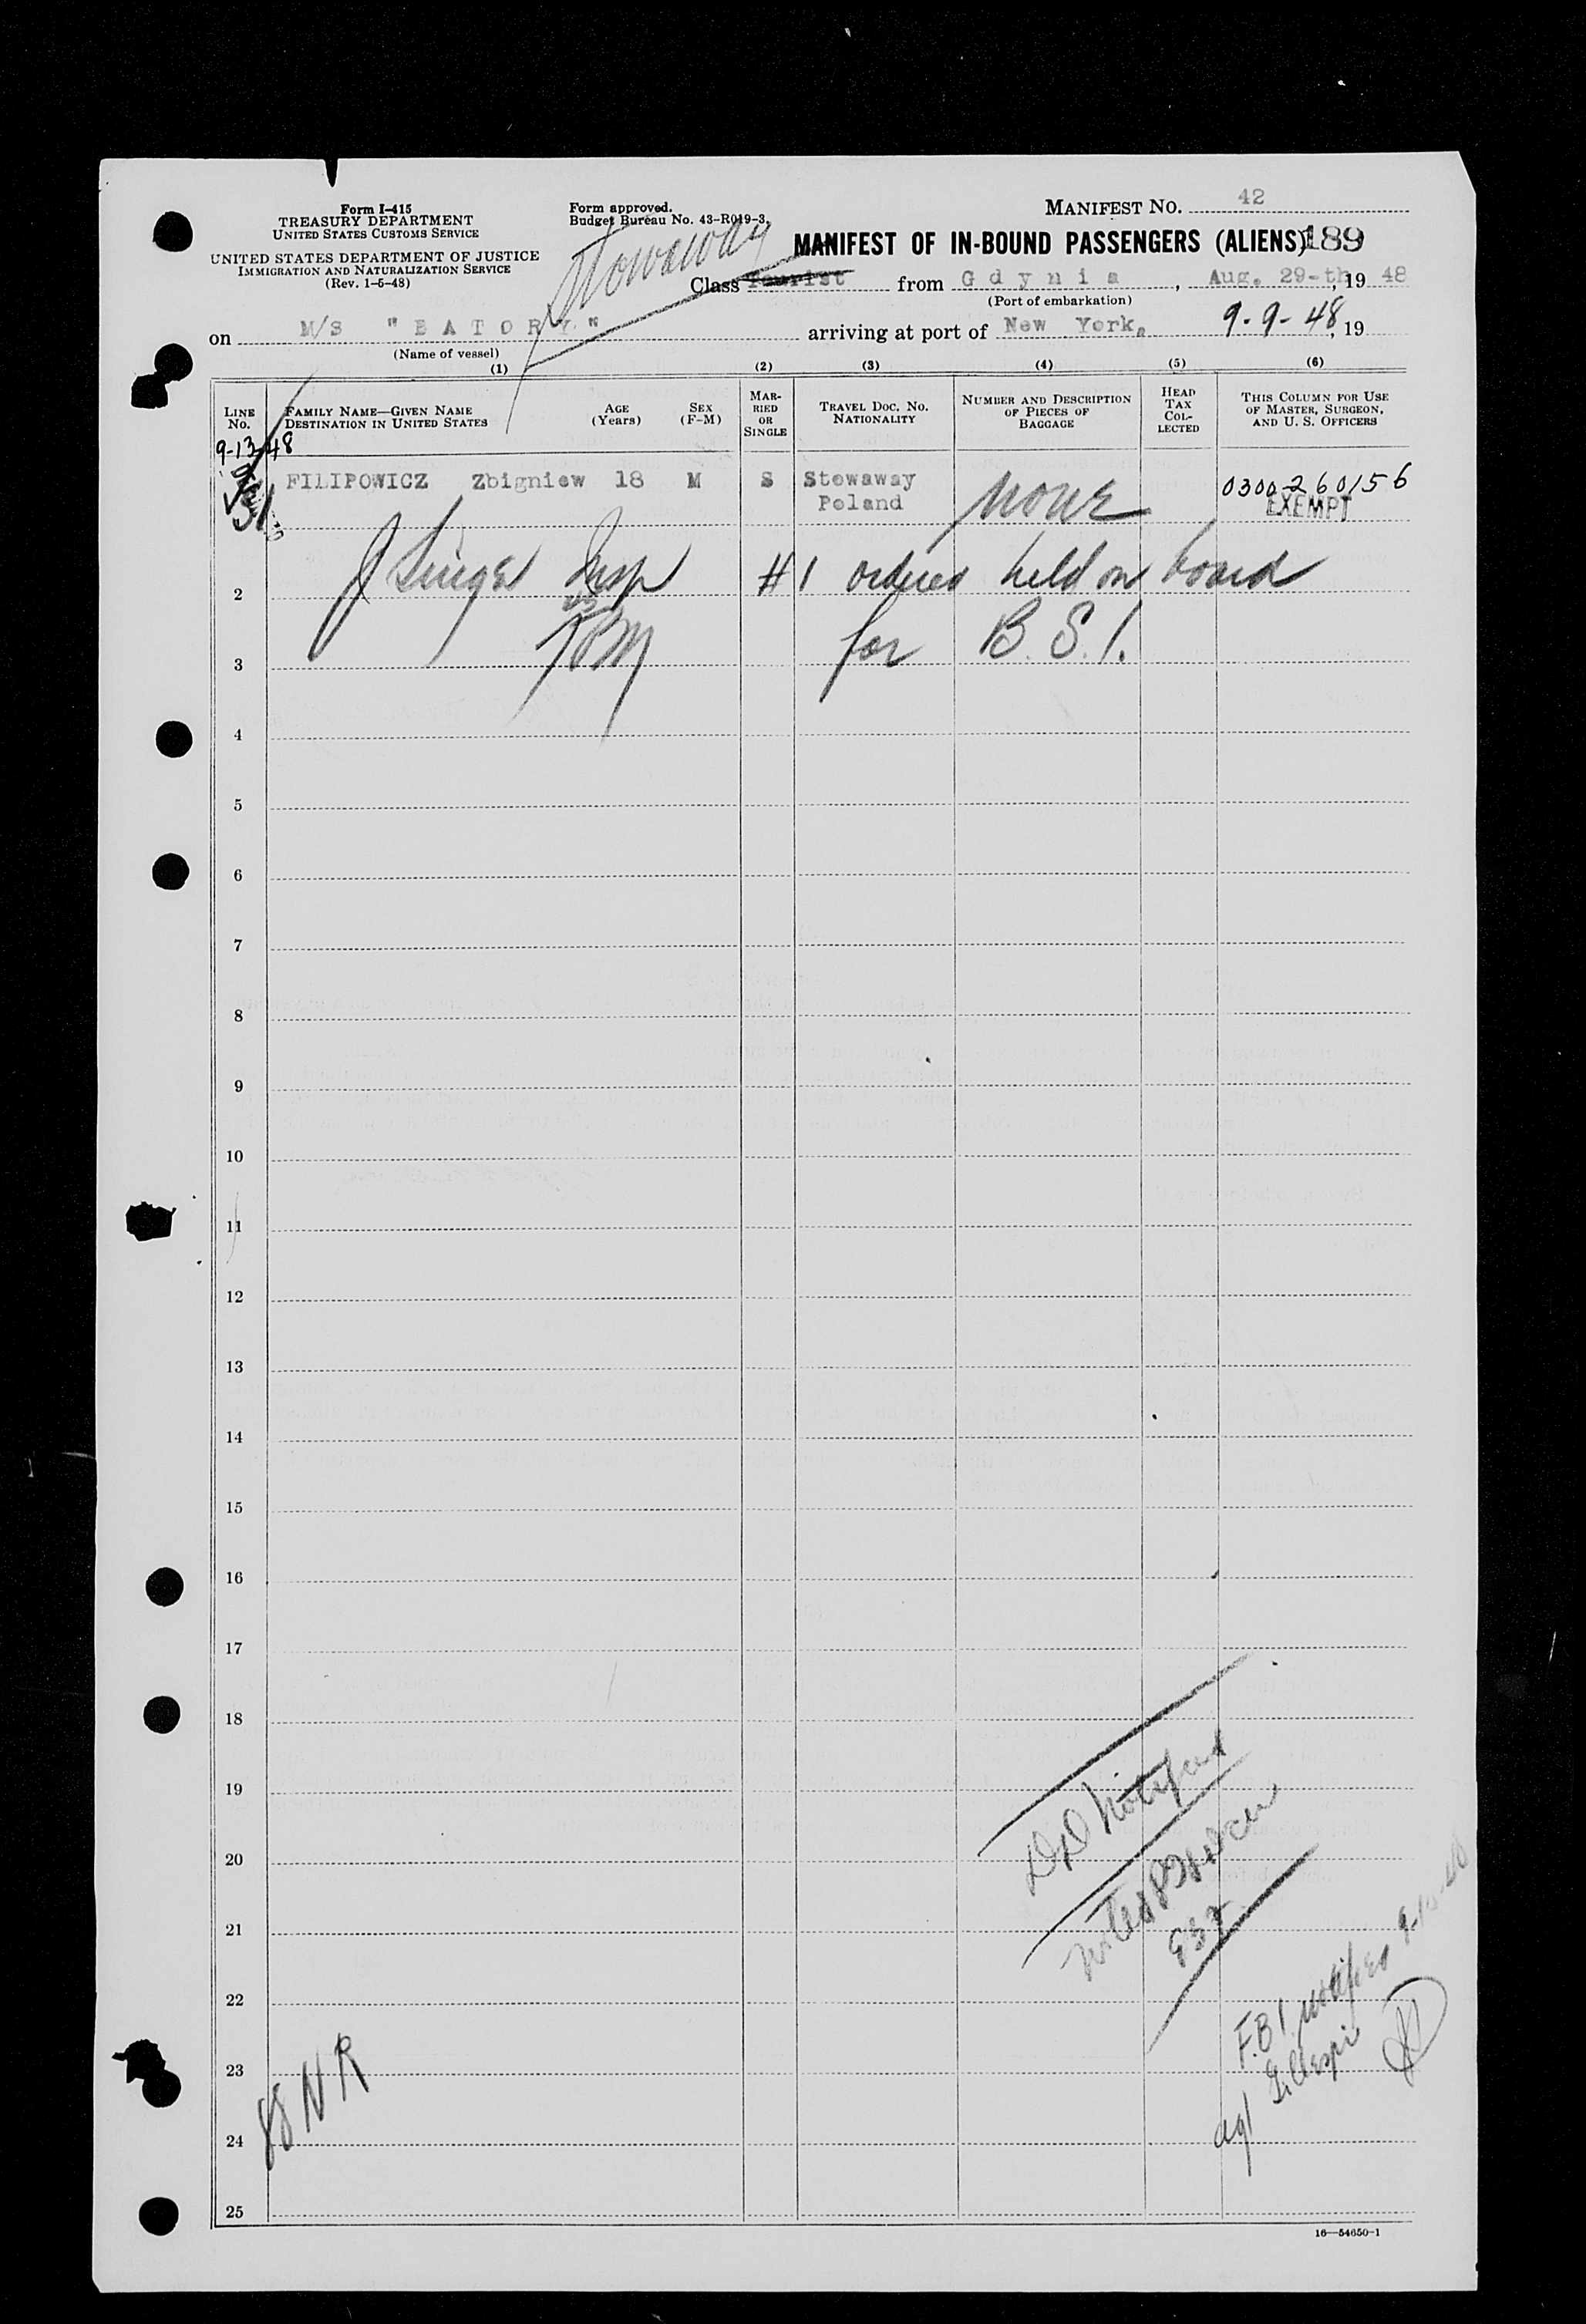 Form I-415
TREASURY DEPARTMENT
UNITED STATES CUSTOMS SERVICE
UNITED STATES DEPARTMENT OF JUSTICE
IMMIGRATION AND NATURALIZATION SERVICE
(Rev. 1-5-48)
Form approved.
Budget Bureau No. 43-R019-3.
MANIFEST NO. 42
MANIFEST OF IN-BOUND PASSENGERS (ALIENS) 189
Stowaway
Class Tourist from Gdynia, Aug. 29-th, 19 48
(Port of embarkation)
on M/S "BATORY" arriving at port of New York, 9-9-48, 19
(Name of vessel)
(1) (2) (3) (4) (5) (6)
LINE NO.
FAMILY NAME—GIVEN NAME
DESTINATION IN UNITED STATES
AGE (Years)
SEX (F-M)
MARRIED OR SINGLE
TRAVEL DOC. NO.
NATIONALITY
NUMBER AND DESCRIPTION OF PIECES OF BAGGAGE
HEAD TAX COLLECTED
THIS COLUMN FOR USE OF MASTER, SURGEON, AND U. S. OFFICERS
9-13-48
FILIPOWICZ Zbigniew 18 M S Stowaway None 0300-260156
Poland EXEMPT
J Singer Insp #1 ordered held on board
2
for B.S.I.
3
4
5
6
7
8
9
10
11
12
13
14
15
16
17
18
19
20
21
22
23
24
25
notified
F.B.I notified
agt Gillespie
NR
16—54650-1